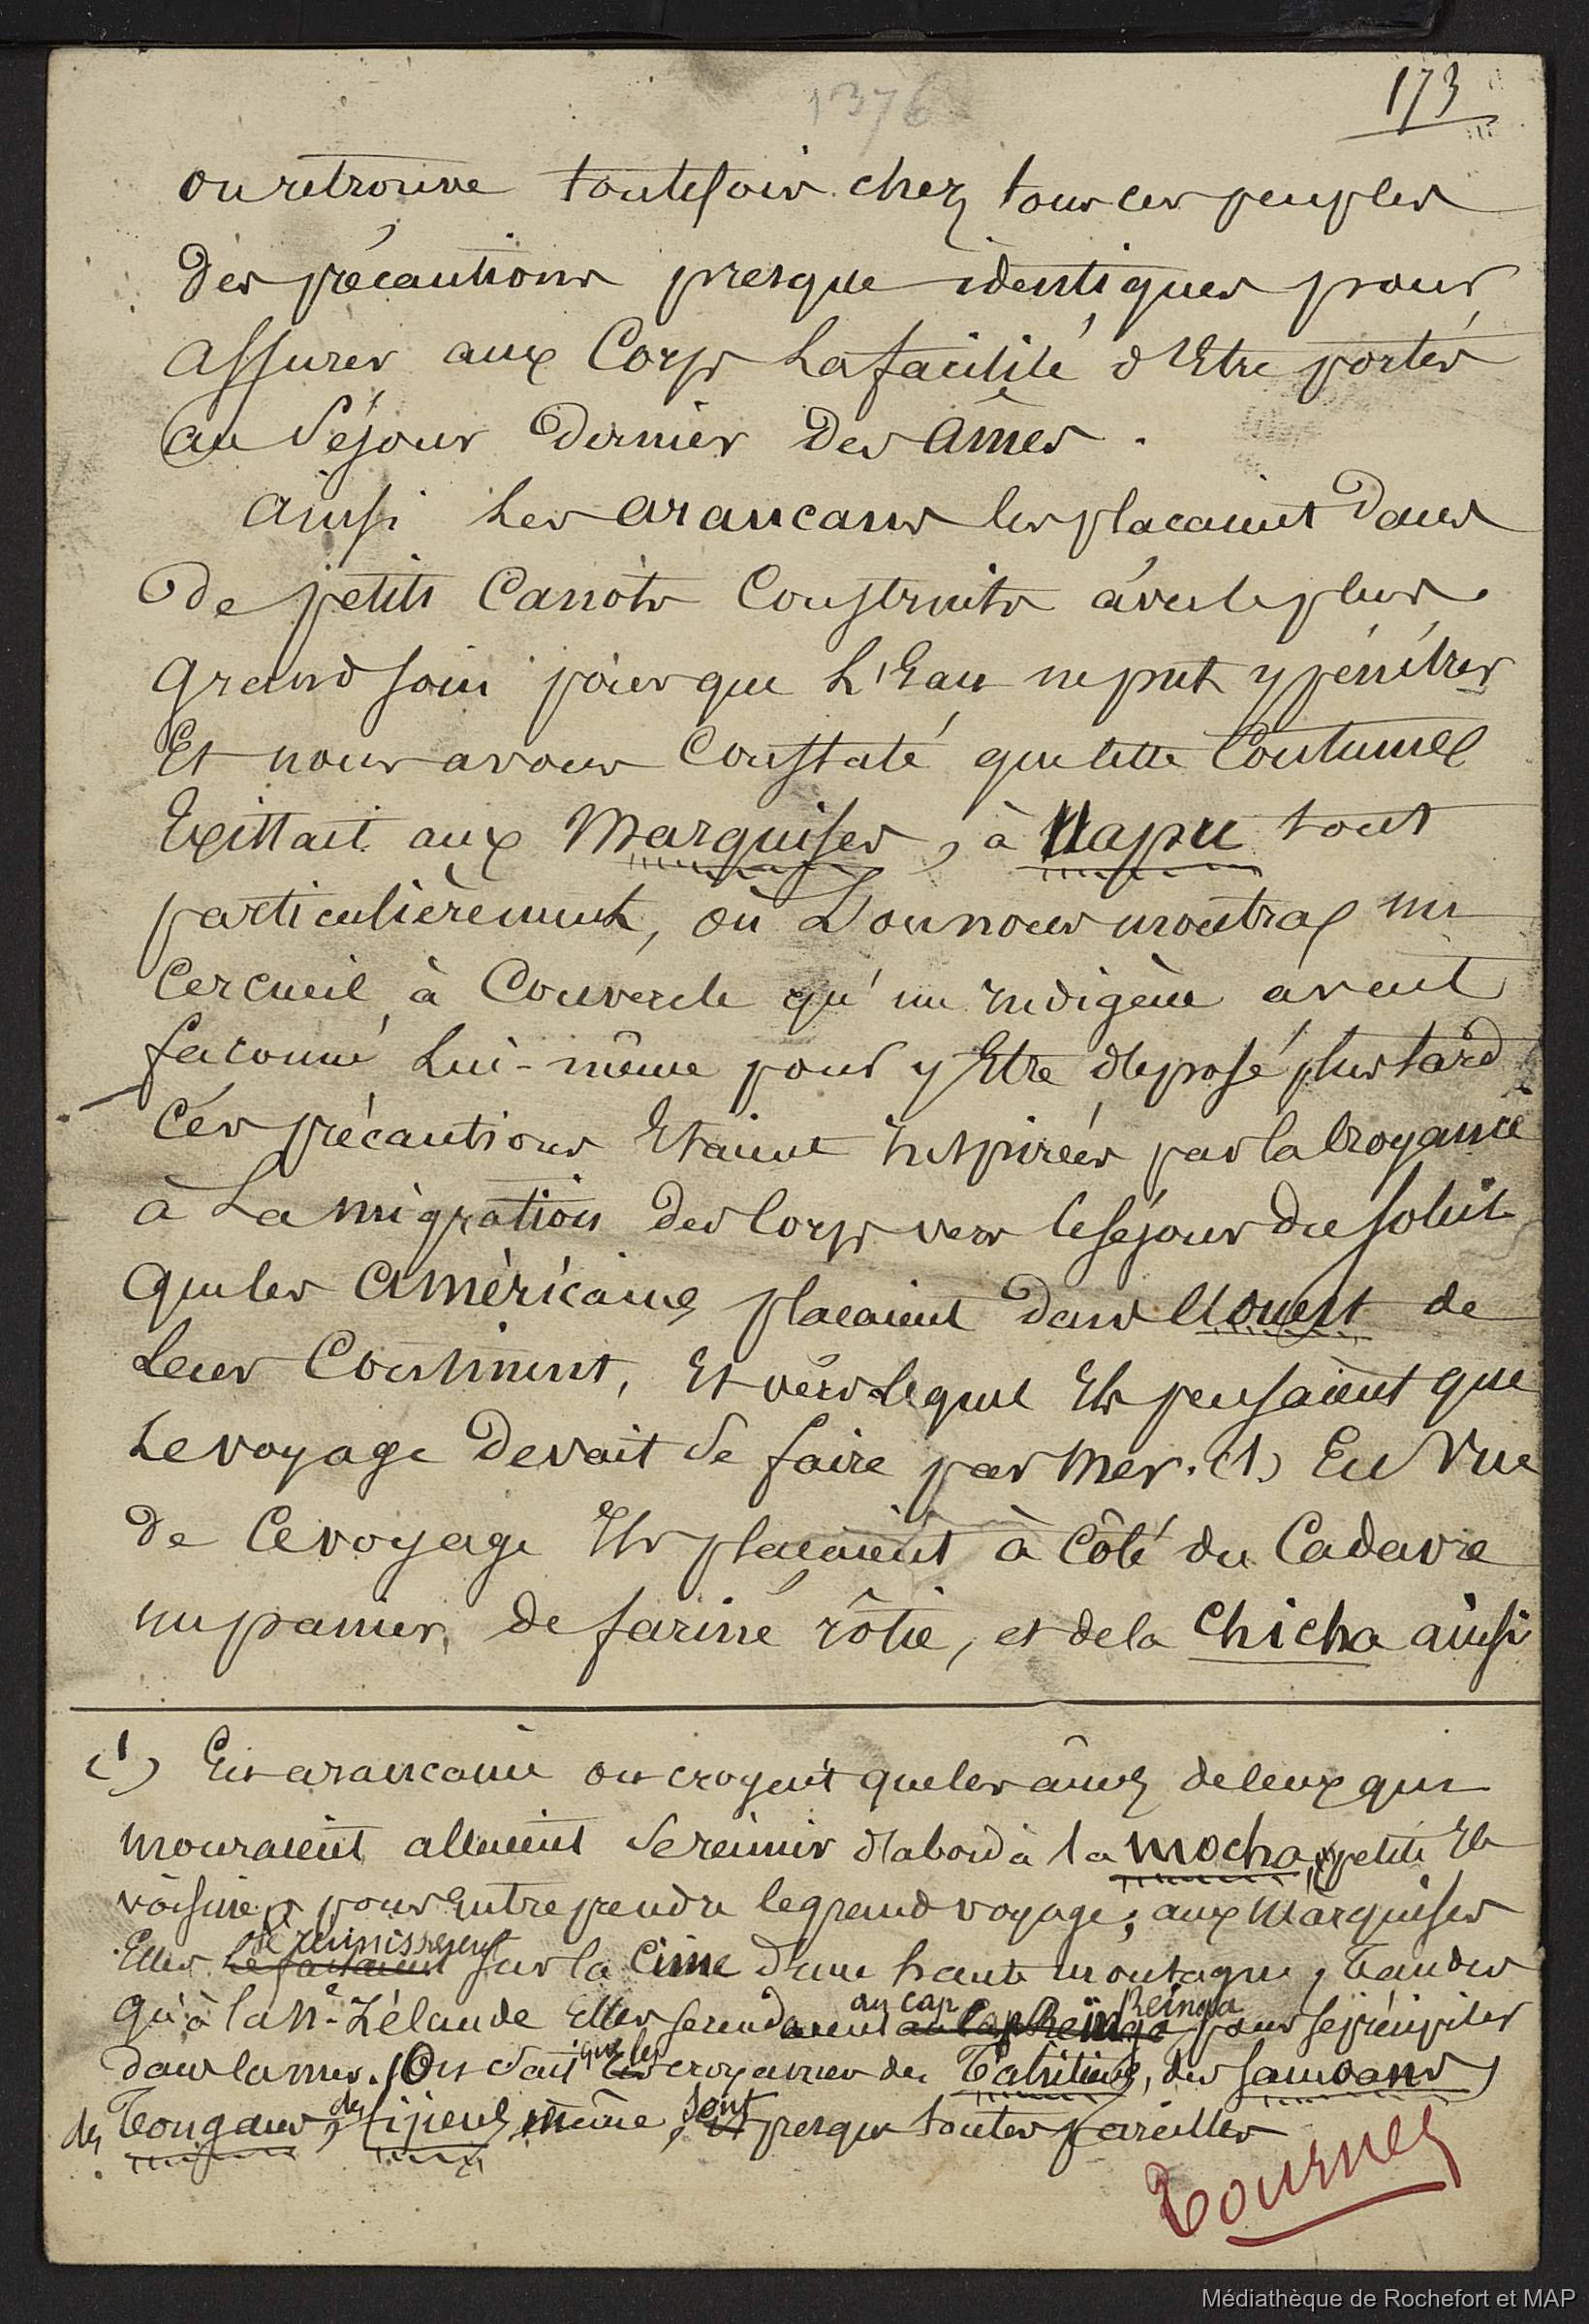 1376
173
on retrouve toutefois chez tous ces peuples
des précautions presque identiques pour
assurer aux Corps la facilité d'Etre portés
au Séjour dernier des âmes.
ainsi les araucans les placaient dans
de petits Canots Construits avec le plus
grand soin pour que l'Eau ne put y pénétrer
Et nous avons Constaté que cette Coutume
Existait aux Marquises, à Uapu tout
particulièrement, où l'on nous montra un
Cercueil à Couvercle qu'un indigène avait
faconné lui-même pour y Etre déposé plus tard
Ces précautions Etaient inspirées par la Croyance
à la migration des Corps vers le séjour du soleil
que les Américains placaient dans l'ouest de
leur Continent, Et vers lequel Ils pensaient que
le voyage devait se faire par mer. (1) En vue
de ce voyage Ils placaient à Côté du Cadavre
un panier de farine rôtie, et de la chicha ainsi
(1) En araucanie on croyait que les âmes de ceux qui
mouraient allaient se réunir d'abord à la mocha, petite Ile
voisine, pour entreprendre le grand voyage; aux Marquises
Elles le faisaient se réunissent sur la cime d'une haute montagne, tandis
qu'à la Nle Zélande Elles se rendaient au Cap Reinga au cap Reinga pour se précipiter
dans la mer. On sait que les croyances des Tahitiens, des samoans,
des Tongans, des fijiens même, sont presque toutes pareilles
Tournez
Médiathèque de Rochefort et MAP